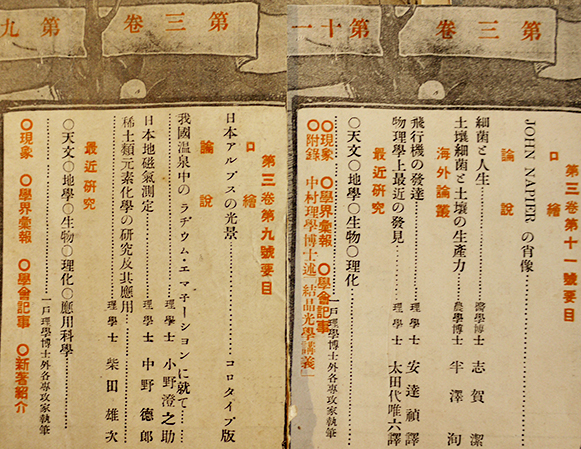 第三卷
第十一
第三卷第十一號要目
口繪
JOHN NAPIER の肖像
論說
細菌と人生 醫學博士 志賀潔
土壤細菌と土壤の生產力 農學博士 半澤洵
海外論叢
飛行機の發達 理學士 安達禎譯
物理學上最近の發見 理學士 太田代唯六譯
最近硏究
〇天文〇地學〇生物〇理化
一戶理學博士外各專攻家執筆
〇現象 〇學界彙報 〇學會記事
〇附錄 中村理學博士述「結晶光學講義」
第三卷
第九
第三卷第九號要目
口繪
日本アルプスの光景 コロタイプ版
論說
我國溫泉中のラヂウムエマナーションに就て 理學士 小野澄之助
日本地磁氣測定 理學士 中野德郎
稀土類元素化學の硏究及其應用 理學士 柴田雄次
最近硏究
〇天文〇地學〇生物〇理化〇應用科學
一戶理學博士外各專攻家執筆
〇現象 〇學界彙報 〇學會記事 〇新著紹介